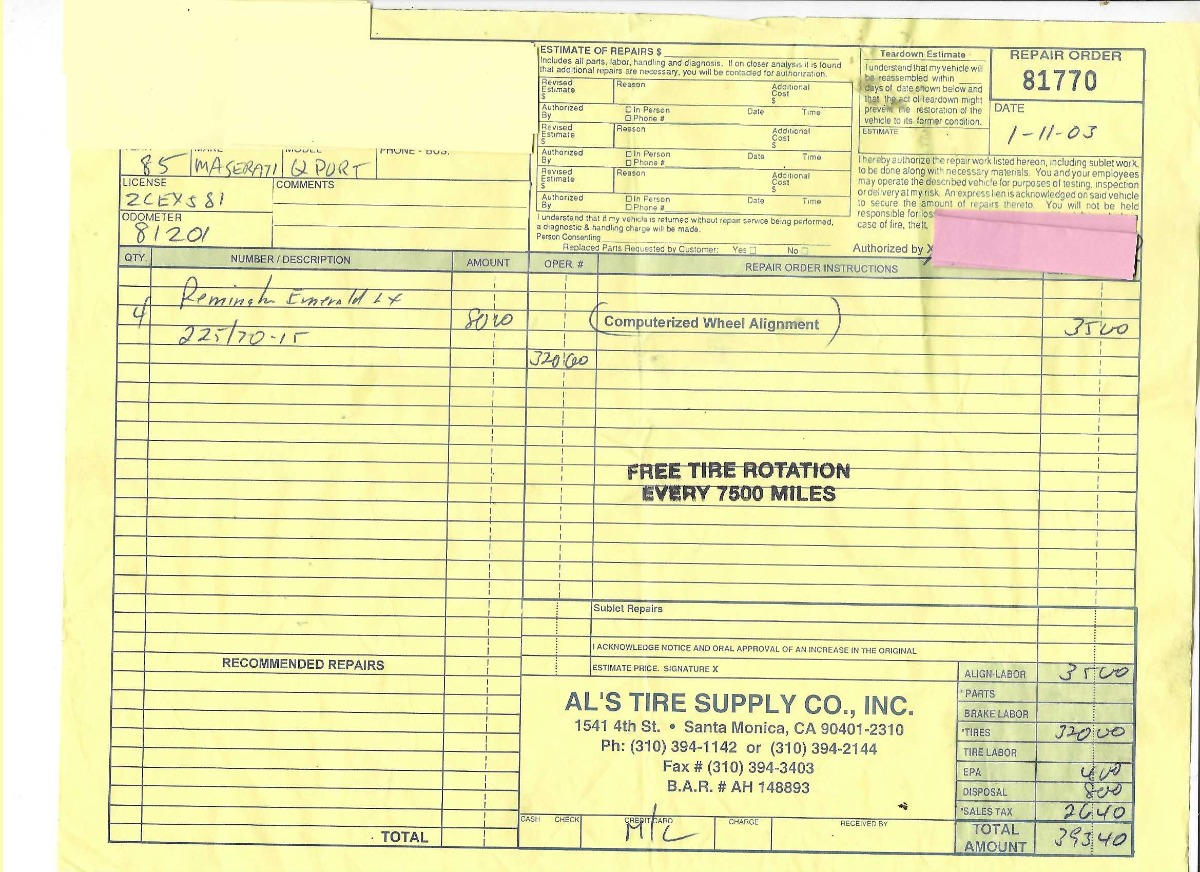 ESTIMATE OF REPAIRS $
Includes all parts, labor, handling and diagnosis. If on closer analysis it is found
that additional repairs are necessary, you will be contacted for authorization.
Revised Estimate $ Reason Additional Cost $
Authorized By In Person Phone # Date Time
Revised Estimate $ Reason Additional Cost $
Authorized By In Person Phone # Date Time
Revised Estimate $ Reason Additional Cost $
Authorized By In Person Phone # Date Time
I understand that if my vehicle is returned without repair service being performed,
a diagnostic & handling charge will be made.
Person Consenting
Replaced Parts Requested by Customer: Yes No
Teardown Estimate
I understand that my vehicle will
be reassembled within
days of date shown below and
that the act of teardown might
prevent the restoration of the
vehicle to its former condition.
ESTIMATE
REPAIR ORDER
81770
DATE
1-11-03
I hereby authorize the repair work listed hereon, including sublet work,
to be done along with necessary materials. You and your employees
may operate the described vehicle for purposes of testing, inspection
or delivery at my risk. An express lien is acknowledged on said vehicle
to secure the amount of repairs thereto. You will not be held
responsible for loss
case of fire, theft,
Authorized by X
MODEL PHONE - BUS.
85 MASERATI Q PORT
LICENSE
2CEX581
COMMENTS
ODOMETER
81201
QTY. NUMBER / DESCRIPTION AMOUNT OPER. # REPAIR ORDER INSTRUCTIONS
Remington Emerald LX
4 8000 Computerized Wheel Alignment 3500
225/70-15
32000
FREE TIRE ROTATION
EVERY 7500 MILES
Sublet Repairs
I ACKNOWLEDGE NOTICE AND ORAL APPROVAL OF AN INCREASE IN THE ORIGINAL
ESTIMATE PRICE. SIGNATURE X
RECOMMENDED REPAIRS
TOTAL
AL'S TIRE SUPPLY CO., INC.
1541 4th St. • Santa Monica, CA 90401-2310
Ph: (310) 394-1142 or (310) 394-2144
Fax # (310) 394-3403
B.A.R. # AH 148893
CASH CHECK CREDIT CARD CHARGE RECEIVED BY
M/C
ALIGN-LABOR 3500
*PARTS
BRAKE LABOR
*TIRES 32000
TIRE LABOR
EPA 400
DISPOSAL 800
*SALES TAX 2640
TOTAL AMOUNT 39340